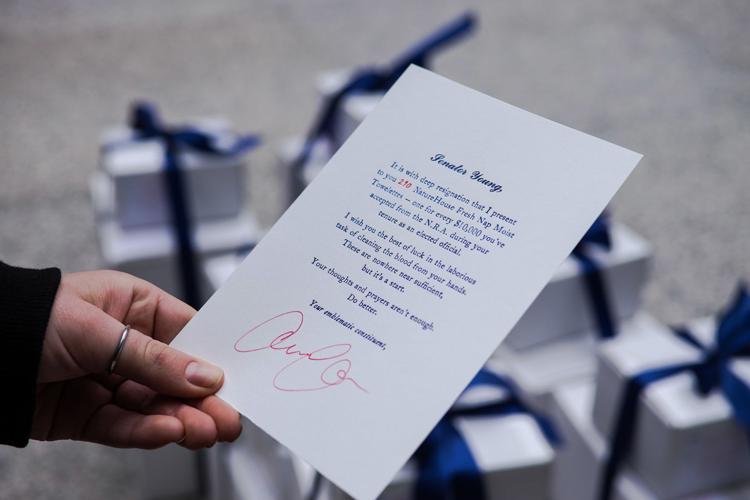 Senator Young,
It is with deep resignation that I present
to you 290 NatureHouse Fresh Nap Moist
Towelettes – one for every $10,000 you've
accepted from the N.R.A. during your
tenure as an elected official.
I wish you the best of luck in the laborious
task of cleaning the blood from your hands.
These are nowhere near sufficient,
but it's a start.
Your thoughts and prayers aren't enough.
Do better.
Your emblematic constituent,